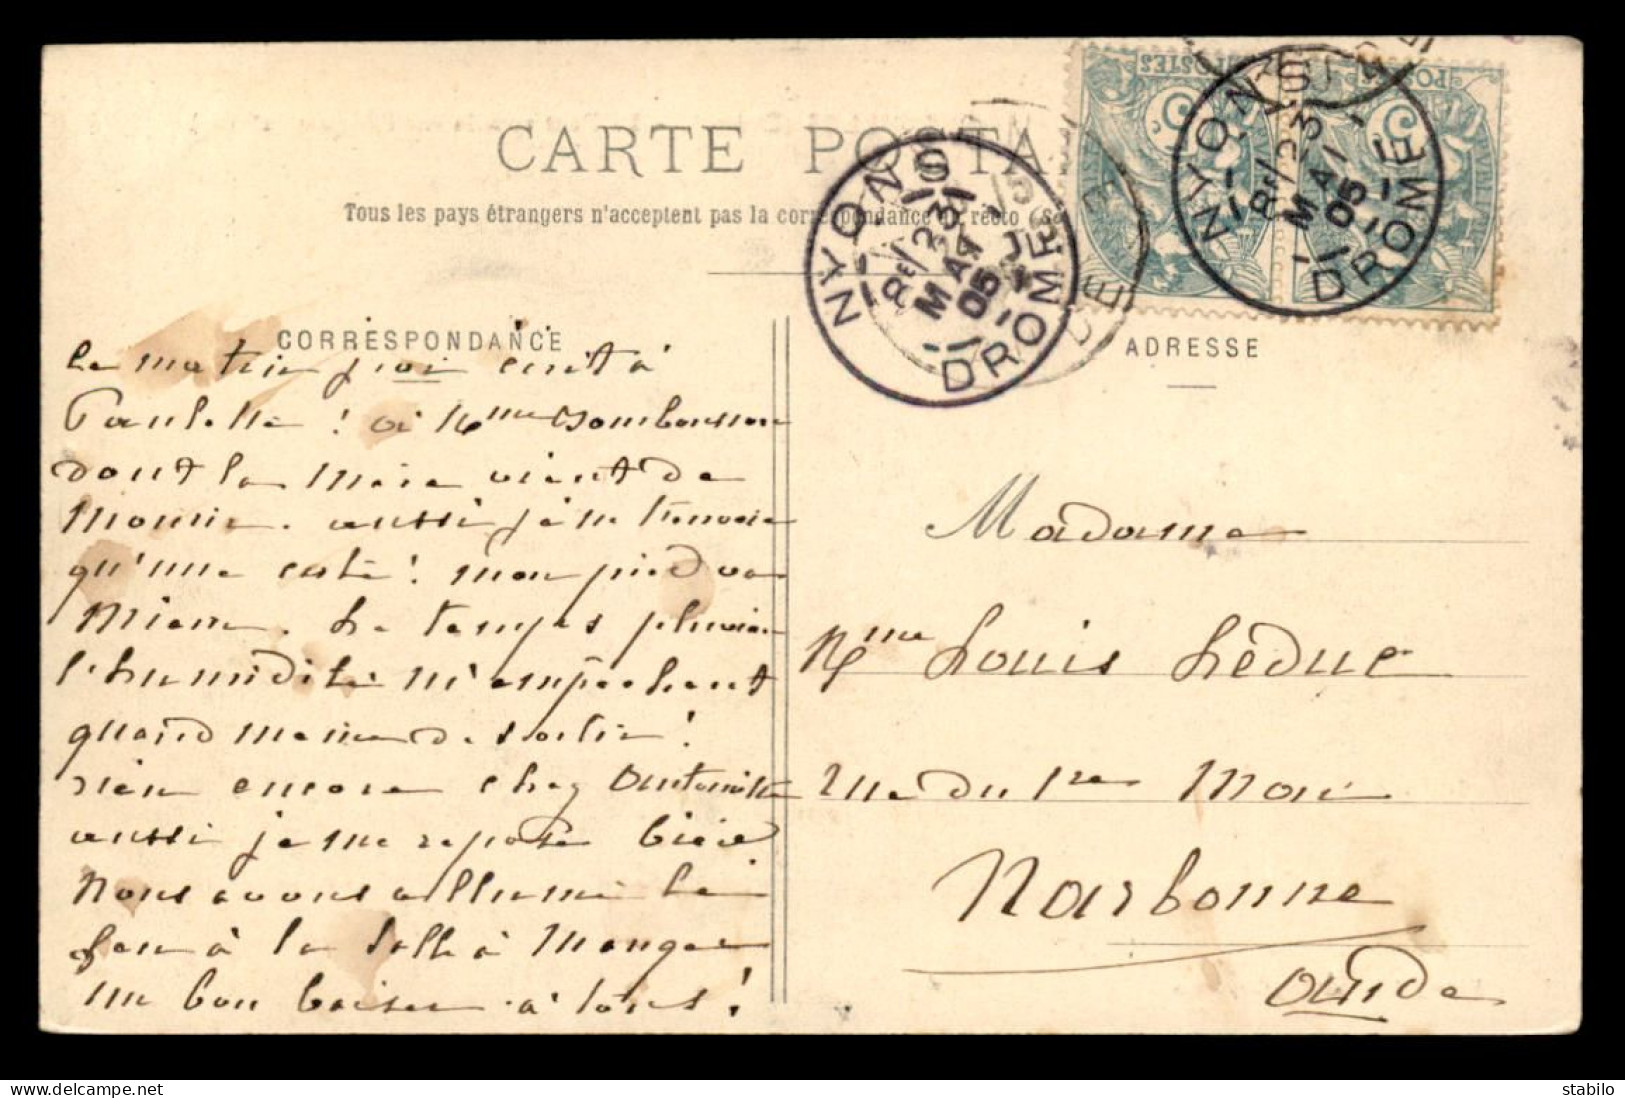 CARTE POSTA
Tous les pays étrangers n'acceptent pas la correspondance au recto (Se
NYONS
Re/23
MAI
05
DROME
NYONS
Re/23
MAI
05
DROME
POSTES
5
POSTES
5
CORRESPONDANCE
Le matin j'ai écrit à
Paulette ! à Mme
dont la mère vient de
mourir. aussi je ne t'envoie
qu'une carte ! mon pied va
mieux. Le temps pluvieux
l'humidité m'empêchent
quand même de sortir !
rien encore chez Antoinette
aussi je me repose bien
nous avons allumé le
feu à la salle à manger
un bon baiser à tous !
ADRESSE
Madame
Mme Louis Léduc
rue du 1er Mai
Narbonne
Aude
stabilo
www.delcampe.net